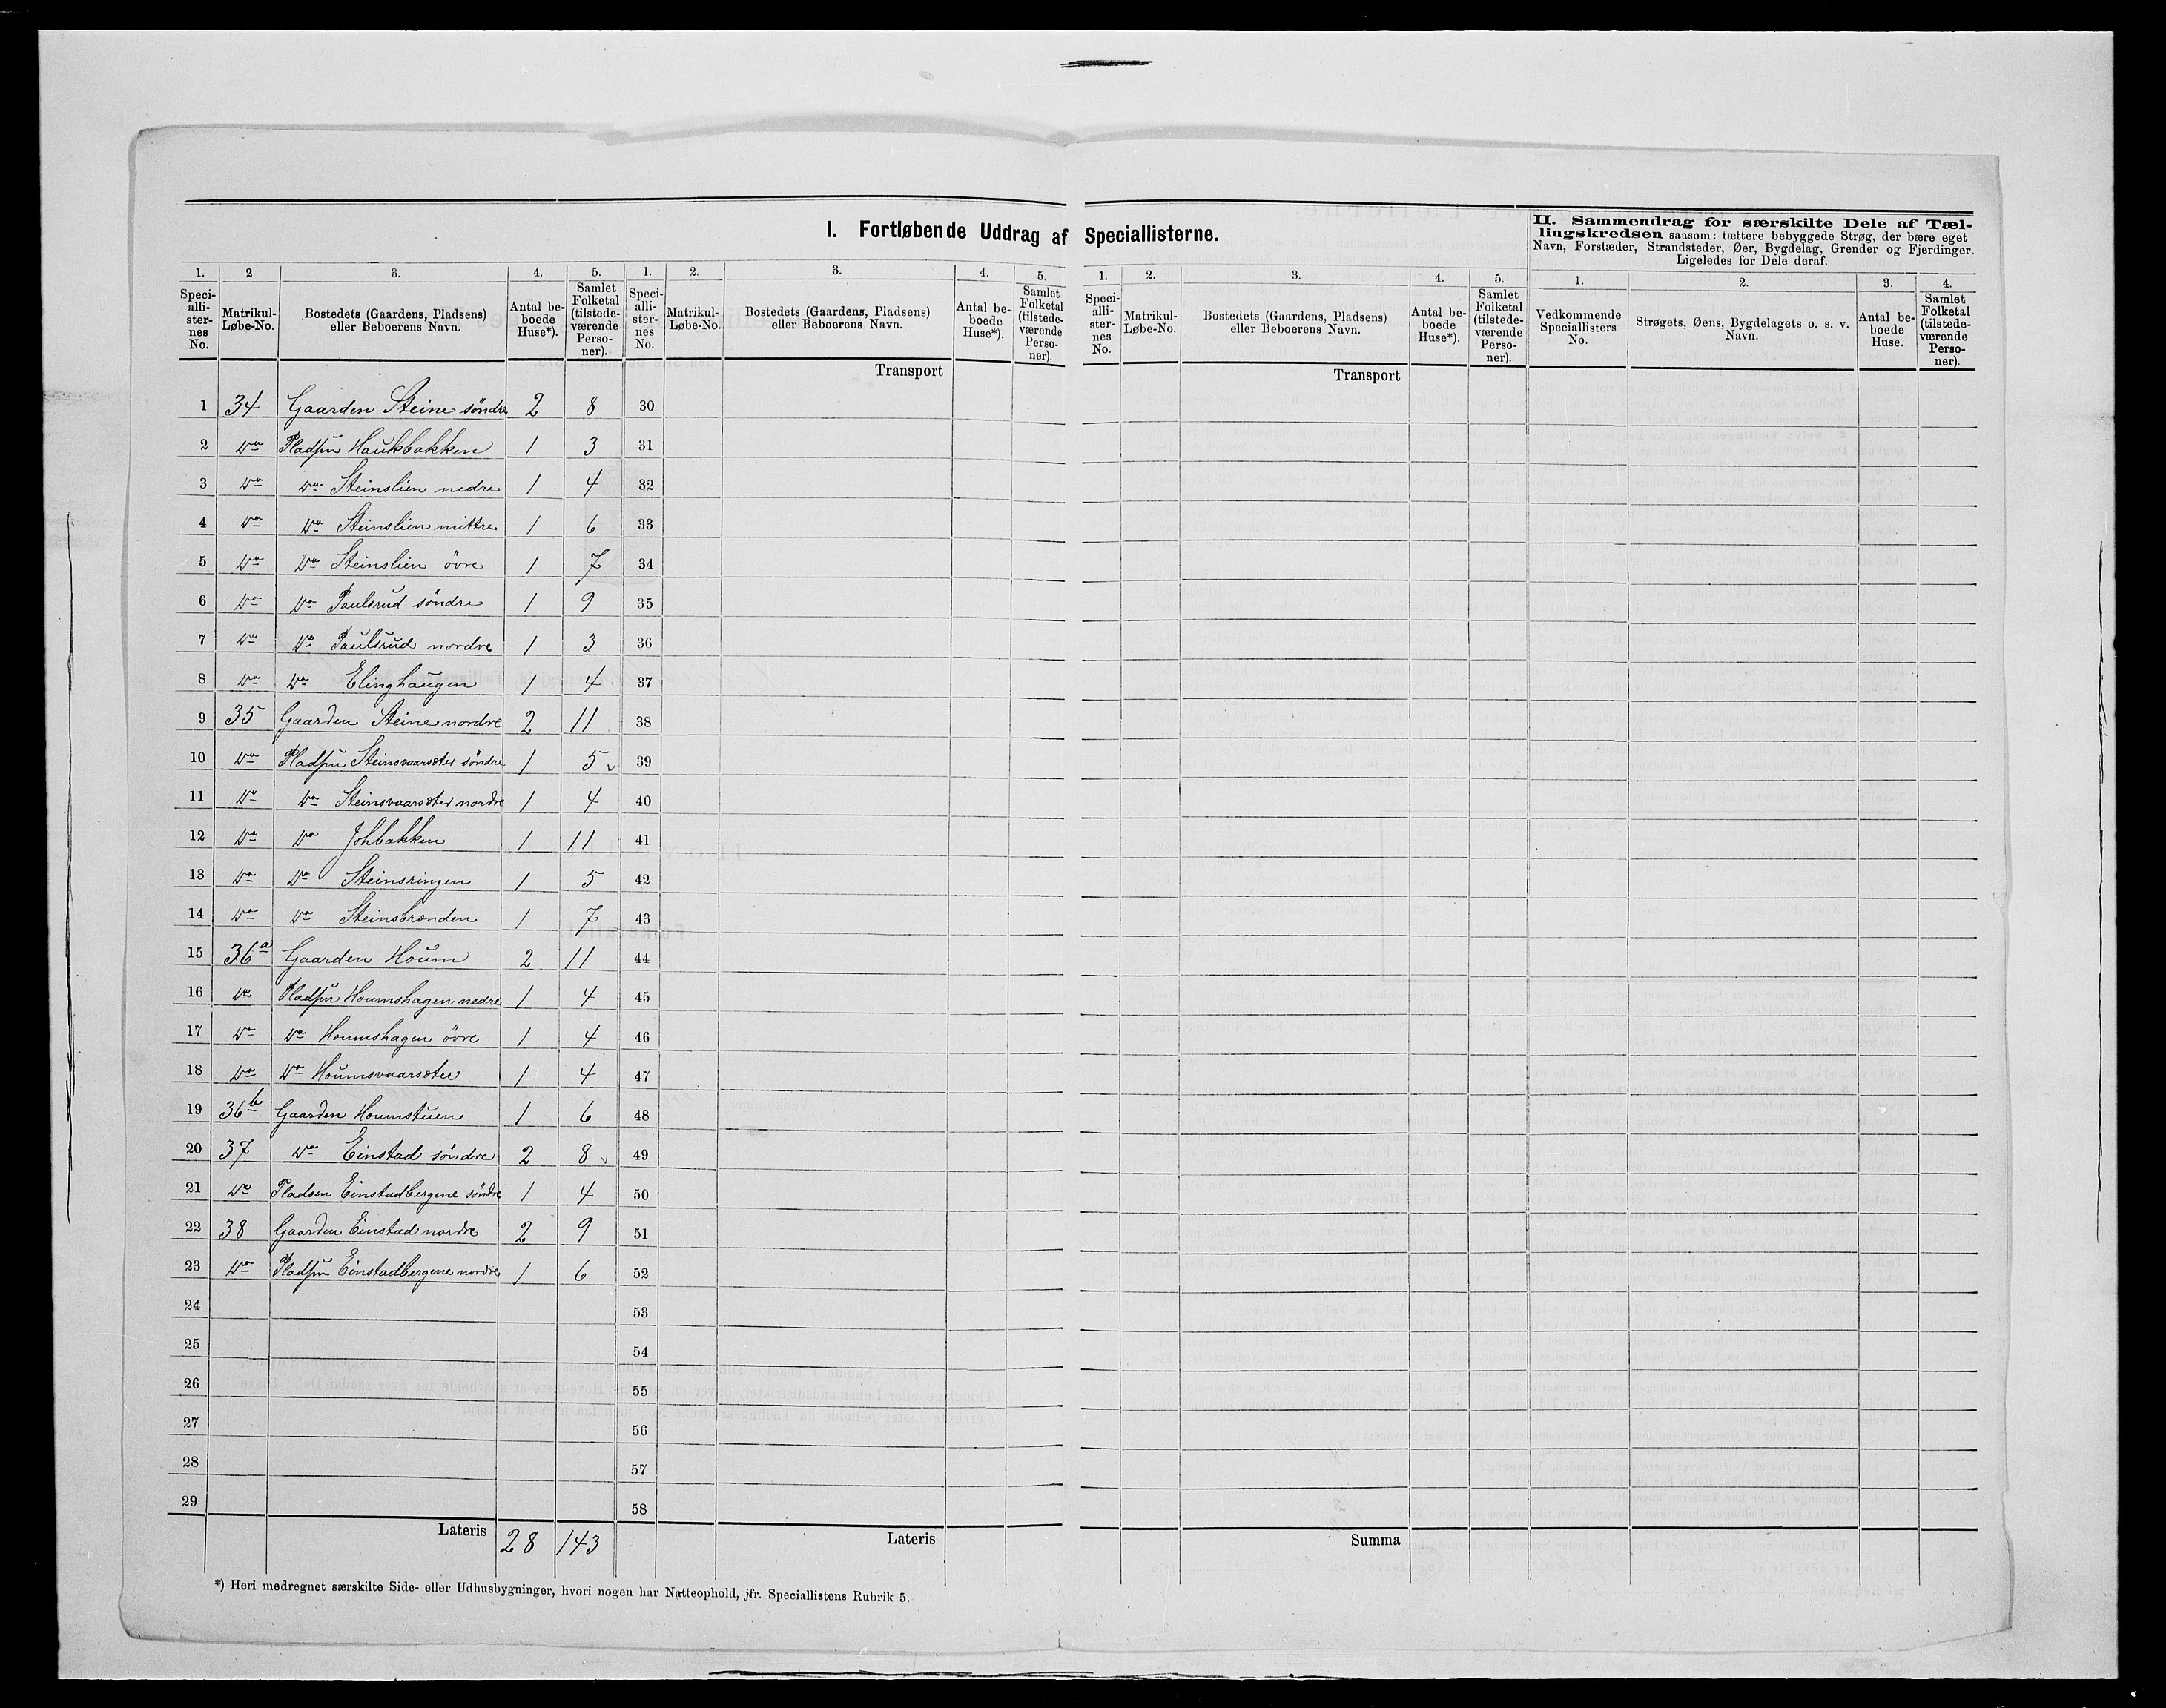 I. Fortløbende Uddrag af Speciallisterne.
II. Sammendrag for særskilte Dele af Tæl-
lingskredsen saasom: tættere bebyggede Strøg, der bære eget
Navn, Forstæder, Strandsteder, Øer, Bygdelag, Grender og Fjerdinger.
Ligeledes for Dele deraf.
1. 2 3. 4. 5. 1. 2. 3. 4. 5. 1. 2. 3. 4. 5. 1. 2. 3. 4.
Speci-alli-ster-nes No. Matrikul-Løbe-No. Bostedets (Gaardens, Pladsens) eller Beboerens Navn. Antal be-boede Huse*). Samlet Folketal (tilstede-værende Perso-ner).
Speci-alli-ster-nes No. Matrikul-Løbe-No. Bostedets (Gaardens, Pladsens) eller Beboerens Navn. Antal be-boede Huse*). Samlet Folketal (tilstede-værende Perso-ner).
Speci-alli-ster-nes No. Matrikul-Løbe-No. Bostedets (Gaardens, Pladsens) eller Beboerens Navn. Antal be-boede Huse*). Samlet Folketal (tilstede-værende Perso-ner).
Vedkommende Speciallisters No. Strøgets, Øens, Bygdelagets o. s. v. Navn. Antal be-boede Huse. Samlet Folketal (tilstede-værende Perso-ner).
Transport Transport
1 34 Gaarden Steine söndre 2 8 30
2 Do Pladsen Haukbakken 1 3 31
3 Do Do Steinslien nedre 1 4 32
4 Do Do Steinslien mittre 1 6 33
5 Do Do Steinslien övre 1 7 34
6 Do Do Paulsrud söndre 1 9 35
7 Do Do Paulsrud nordre 1 3 36
8 Do Do Elinghaugen 1 4 37
9 35 Gaarden Steine nordre 2 11 38
10 Do Pladsen Steinsvaarsæter söndre 1 5 39
11 Do Do Steinsvaarsæter nordre 1 4 40
12 Do Do Johbakken 1 11 41
13 Do Do Steinsringen 1 5 42
14 Do Do Steinsbrænden 1 7 43
15 36a Gaarden Houm 2 11 44
16 Do Pladsen Houmshagen nedre 1 4 45
17 Do Do Houmshagen övre 1 4 46
18 Do Do Houmsvaarsæter 1 4 47
19 36b Gaarden Houmstuen 1 6 48
20 37 Do Einstad söndre 2 8 49
21 Do Pladsen Einstadbergene söndre 1 4 50
22 38 Gaarden Einstad nordre 2 9 51
23 Do Pladsen Einstadbergene nordre 1 6 52
24 53
25 54
26 55
27 56
28 57
29 58
Lateris 28 143 Lateris Summa
*) Heri medregnet særskilte Side- eller Udhusbygninger, hvori nogen har Natteophold, jfr. Speciallistens Rubrik 5.